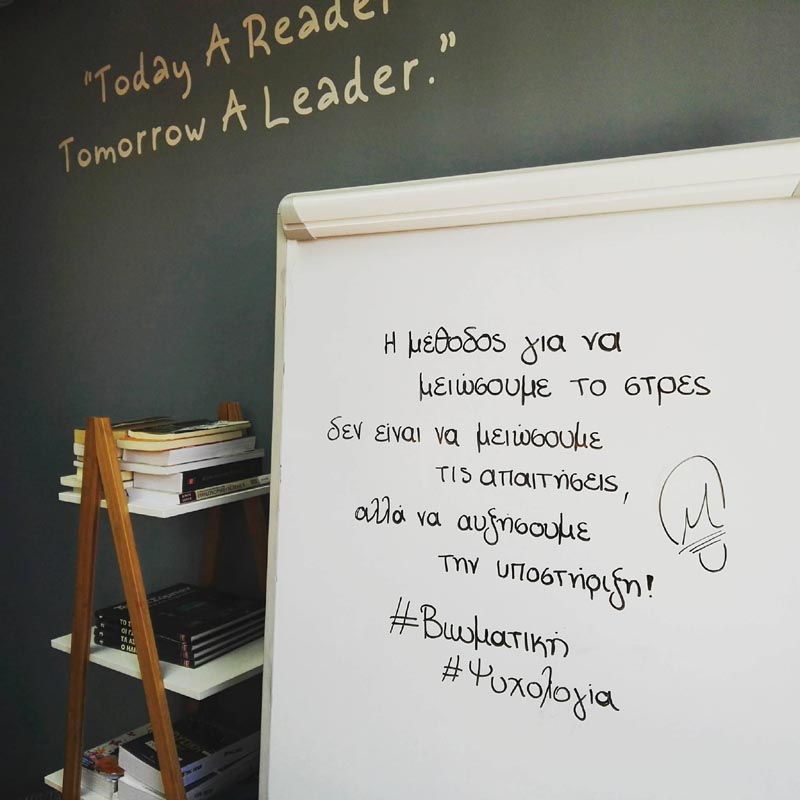 "Today A Reader
Tomorrow A Leader."
Η μέθοδος για να
μειώσουμε το στρες
δεν είναι να μειώσουμε
τις απαιτήσεις,
αλλά να αυξήσουμε
την υποστήριξη!
#Βιωματική
#Ψυχολογία